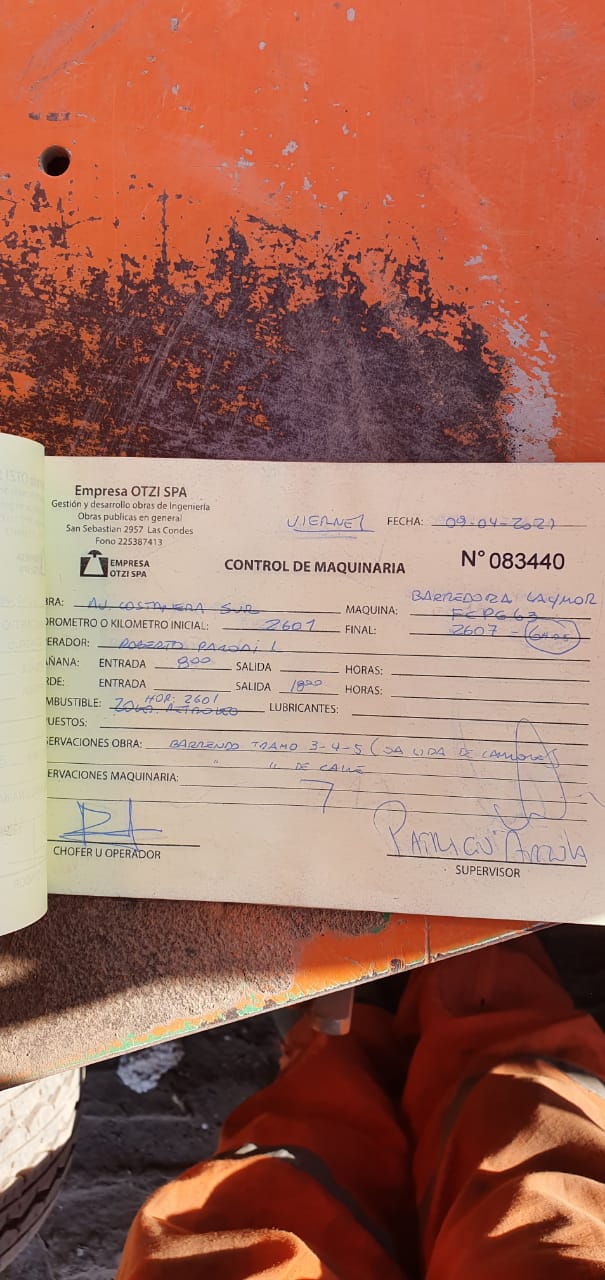 Empresa OTZI SPA
Gestión y desarrollo obras de Ingeniería
Obras publicas en general
San Sebastian 2957 Las Condes
Fono 225387413
EMPRESA
OTZI SPA
VIERNES FECHA: 09-04-2021
CONTROL DE MAQUINARIA N° 083440
BRA: AV. COSTANERA SUR MAQUINA: BARREDORA LAYMOR
FCPG63
OROMETRO O KILOMETRO INICIAL: 2601 FINAL: 2607 -
ERADOR: ROBERTO
AÑANA: ENTRADA 8:00 SALIDA HORAS:
RDE: ENTRADA SALIDA 18:00 HORAS:
HOR: 2601
MBUSTIBLE: PETROLEO LUBRICANTES:
PUESTOS:
SERVACIONES OBRA: BARRIENDO TRAMO 3-4-5 (SALIDA DE CAMIONES
" " DE CALLE
ERVACIONES MAQUINARIA:
CHOFER U OPERADOR
PATRICIO
SUPERVISOR